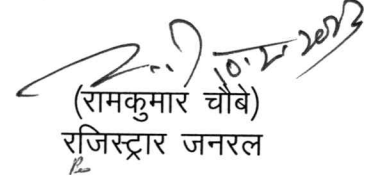 10.2.2023
(रामकुमार चौबे)
रजिस्ट्रार जनरल